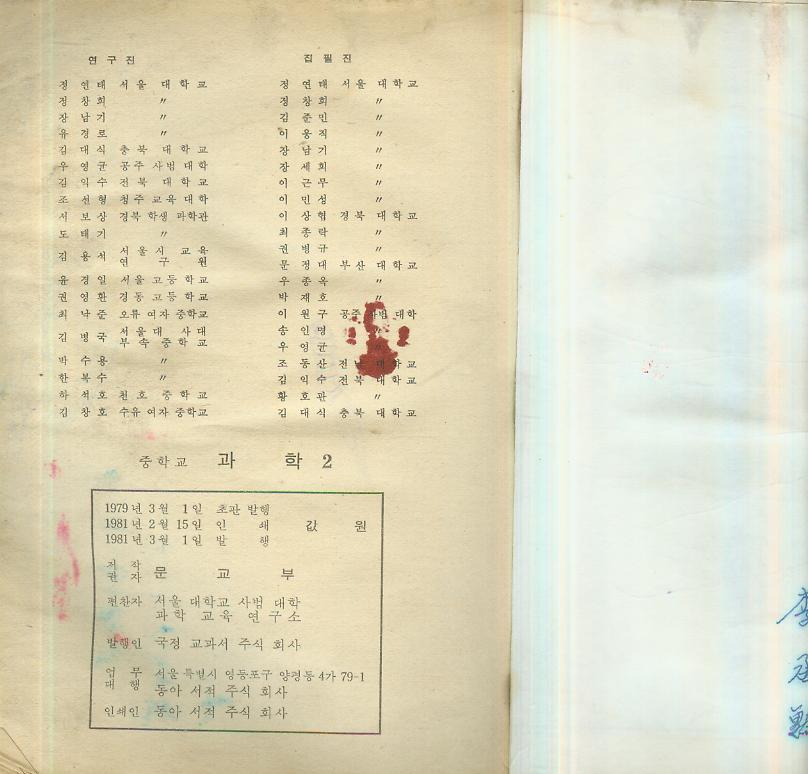 연구진
정연태 서울 대학교
정창희 〃
장남기 〃
유경로 〃
김대식 충북 대학교
우영균 공주 사범 대학
김익수 전북 대학교
조선형 청주 교육 대학
서보상 경북 학생 과학관
도태기 〃
김용석 서울시 교육 연구원
윤경일 서울 고등 학교
권영환 경동 고등 학교
최낙준 오류 여자 중학교
김병국 서울대 사대 부속 중학교
박수용 〃
한복수 〃
하석호 천호 중학교
김창호 수유 여자 중학교
집필진
정연태 서울 대학교
정창희 〃
김준민 〃
이웅직 〃
장남기 〃
장세희 〃
이근무 〃
이민성 〃
이상협 경북 대학교
최종락 〃
권병규 〃
문정대 부산 대학교
우종옥 〃
박재호 〃
이원구 공주 사범 대학
송인명 〃
우영균 〃
조동산 전남 대학교
김익수 전북 대학교
황호관 〃
김대식 충북 대학교
중학교 과학 2
1979년 3월 1일 초판 발행
1981년 2월 15일 인쇄 값 원
1981년 3월 1일 발행
저작권자 문교부
편찬자 서울 대학교 사범 대학
과학 교육 연구소
발행인 국정 교과서 주식 회사
업무대행 서울 특별시 영등포구 양평동 4가 79-1
동아 서적 주식 회사
인쇄인 동아 서적 주식 회사
李